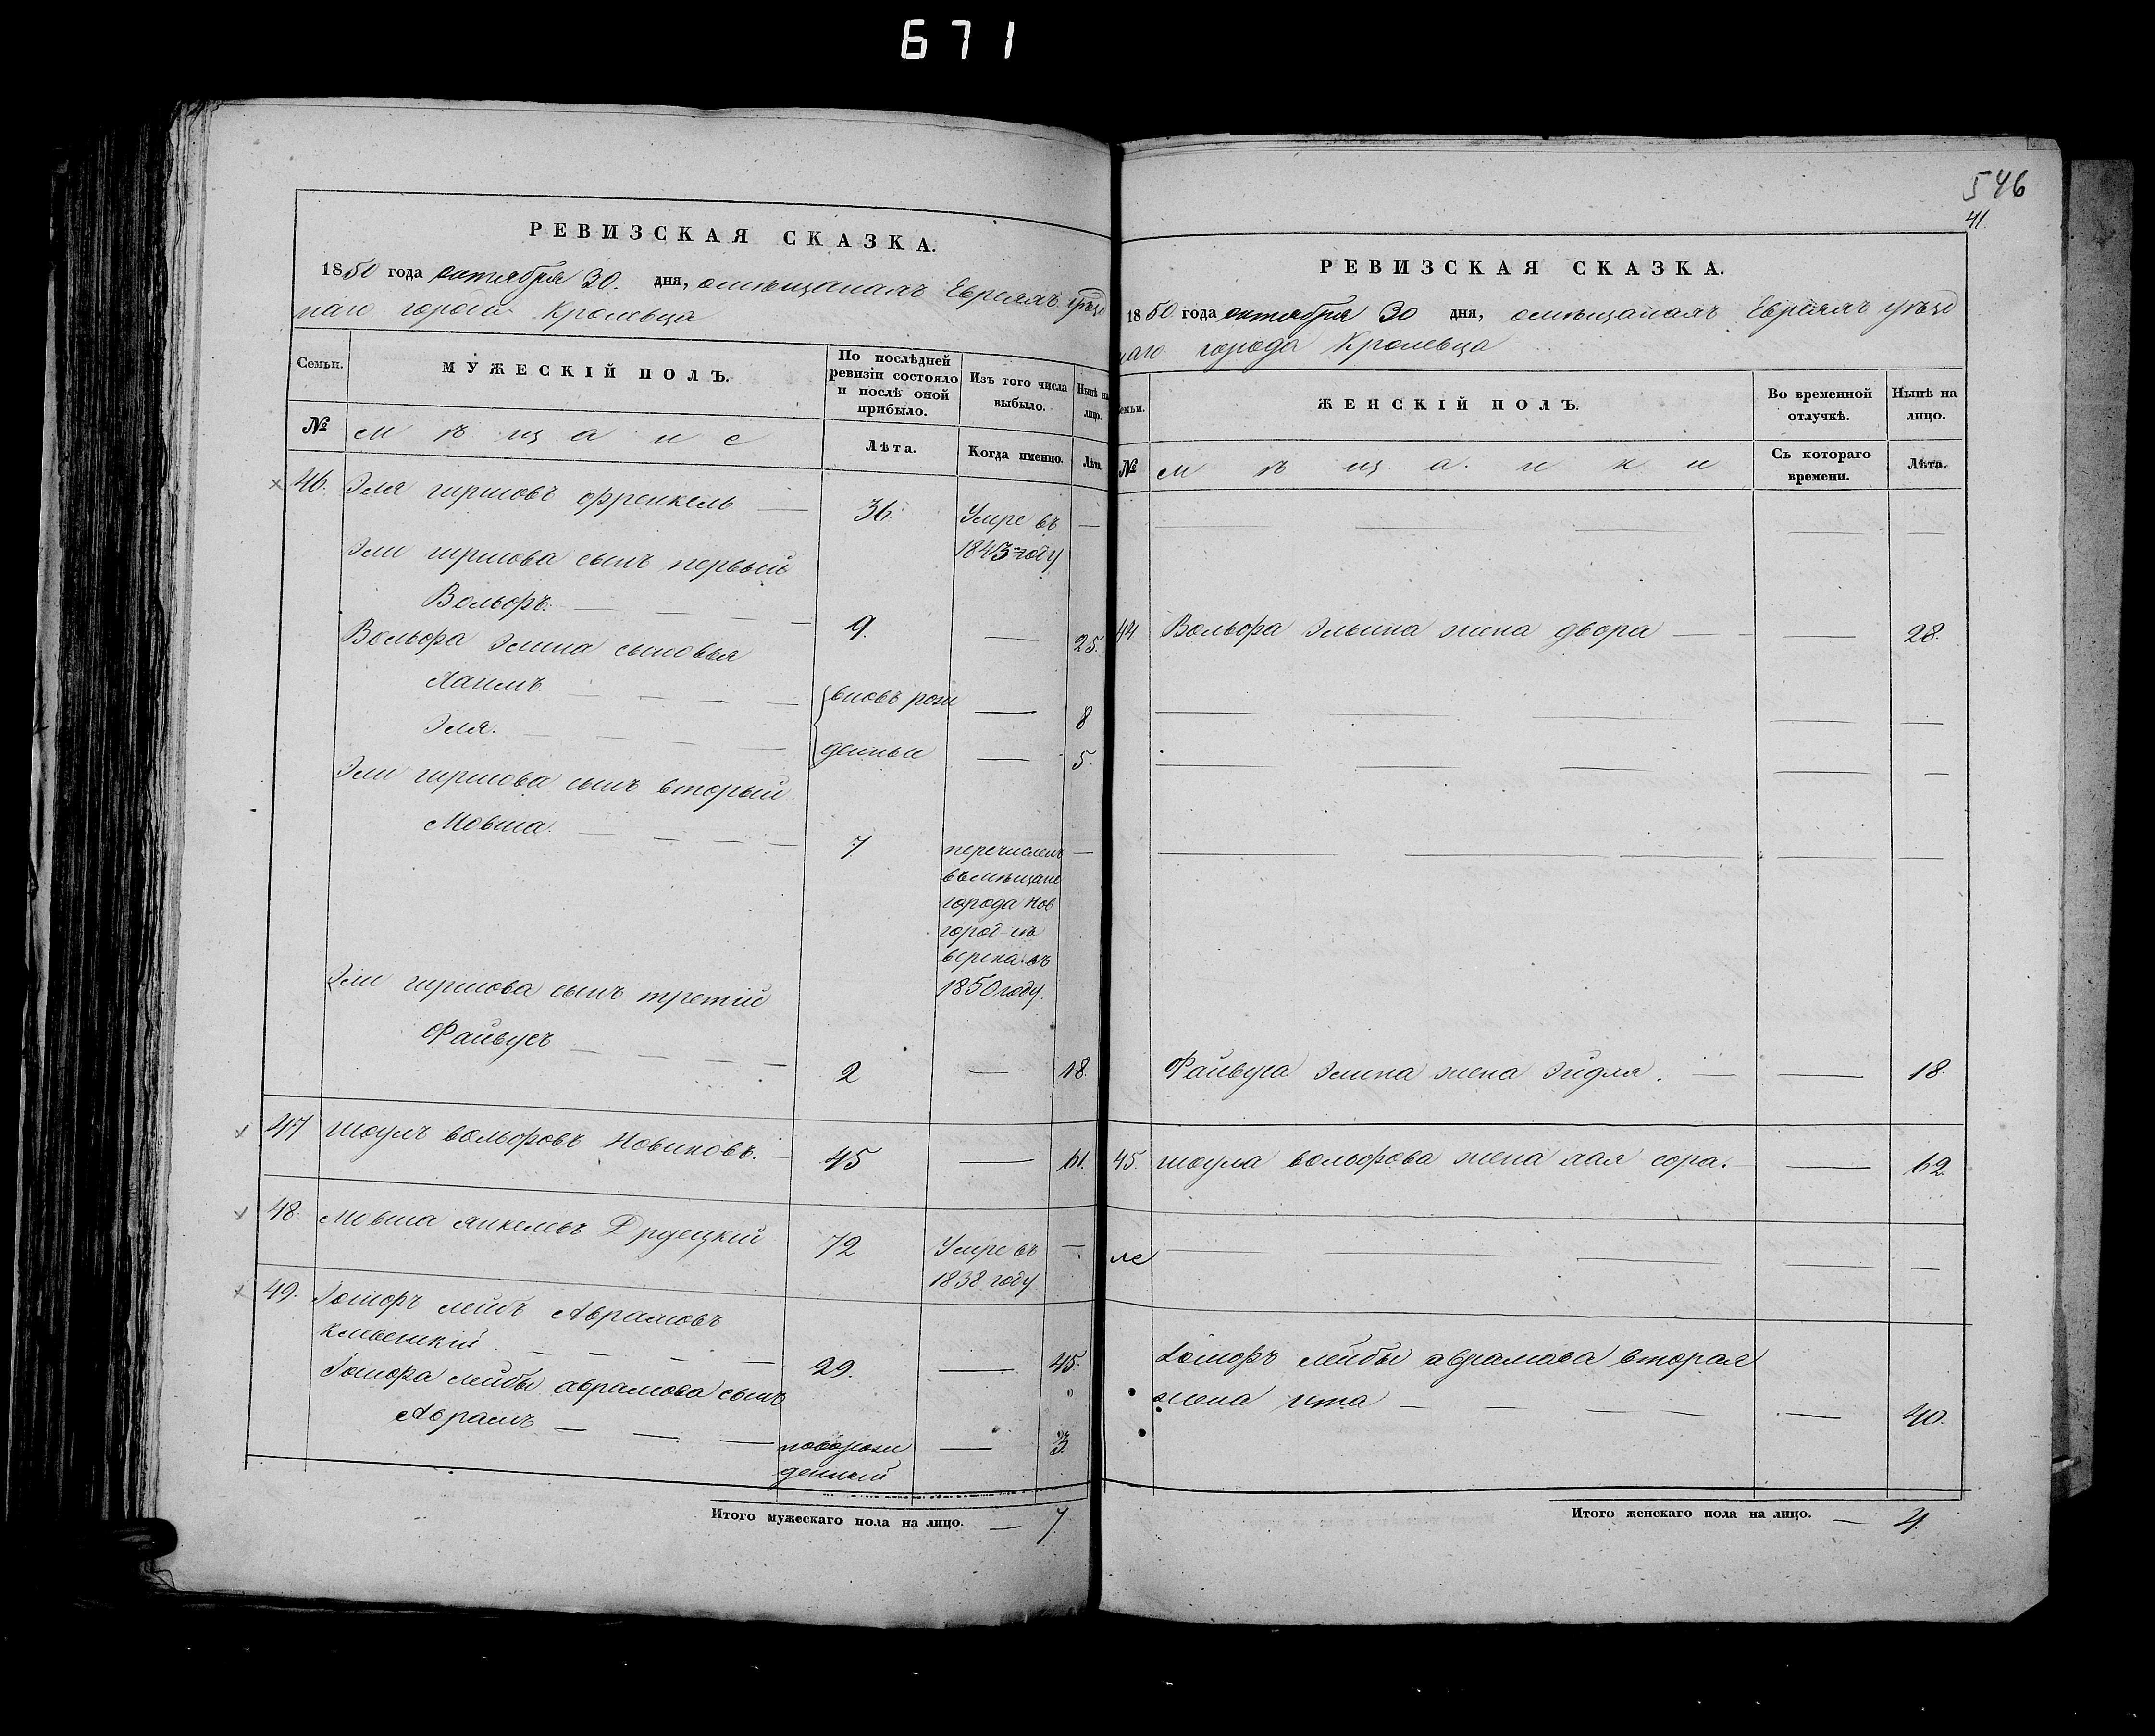 671
РЕВИЗСКАЯ СКАЗКА.
1850 года октября 30. дня, о мѣщанахъ Евреяхъ уѣзд
наго города Кролевца
Семьи.
МУЖЕСКІЙ ПОЛЪ.
По послѣдней ревизіи состояло и послѣ оной прибыло.
Изъ того числа выбыло.
Нынѣ на лицо.
№
мѣщане
Лѣта.
Когда именно.
Лѣта.
46. Эля гиршовъ Френкель — 36. Умре въ —
1843 году
Эли гиршова сынъ первый
Вольфъ. — — — 9. — 25.
Вольфа Элина сыновья
Хаимъ — — — — вновь рож — 8
Эля. — — — — денные — 5
Эли гиршова сынъ вторый
Мовша. — — — — 7. перечисленъ —
въ мещане
города Нов
город сѣ
верска въ
1850 году.
Эли гиршова сынъ третій
Файвусъ — — — — 2 — 18.
47. Шоулъ вольфовъ Новиковъ. — 45 — 61.
48. Мовша янкелевъ 72 Умре въ —
1838 году
49. лейбъ Аврамовъ
— — — — 29. — 45.
лейбы аврамова сынъ
Аврамъ — — — новорож — 3.
денный
Итого мужескаго пола на лицо. — 7.
546
41.
РЕВИЗСКАЯ СКАЗКА.
1850 года октября 30 дня, о мѣщанахъ Евреяхъ уѣзд
наго города Кролевца
Семьи.
ЖЕНСКІЙ ПОЛЪ.
Во временной отлучкѣ.
Нынѣ на лицо.
№
мѣщанки
Съ котораго времени.
Лѣта.
44 Вольфа Эльина жена двора — — — 28.
Файвуса Элина жена Эйдля. — — 18.
45. Шоула вольфова жена хая сора. — 62.
лейбы аврамова вторая
жена ита — — — — — 40.
Итого женскаго пола на лицо. — 4.